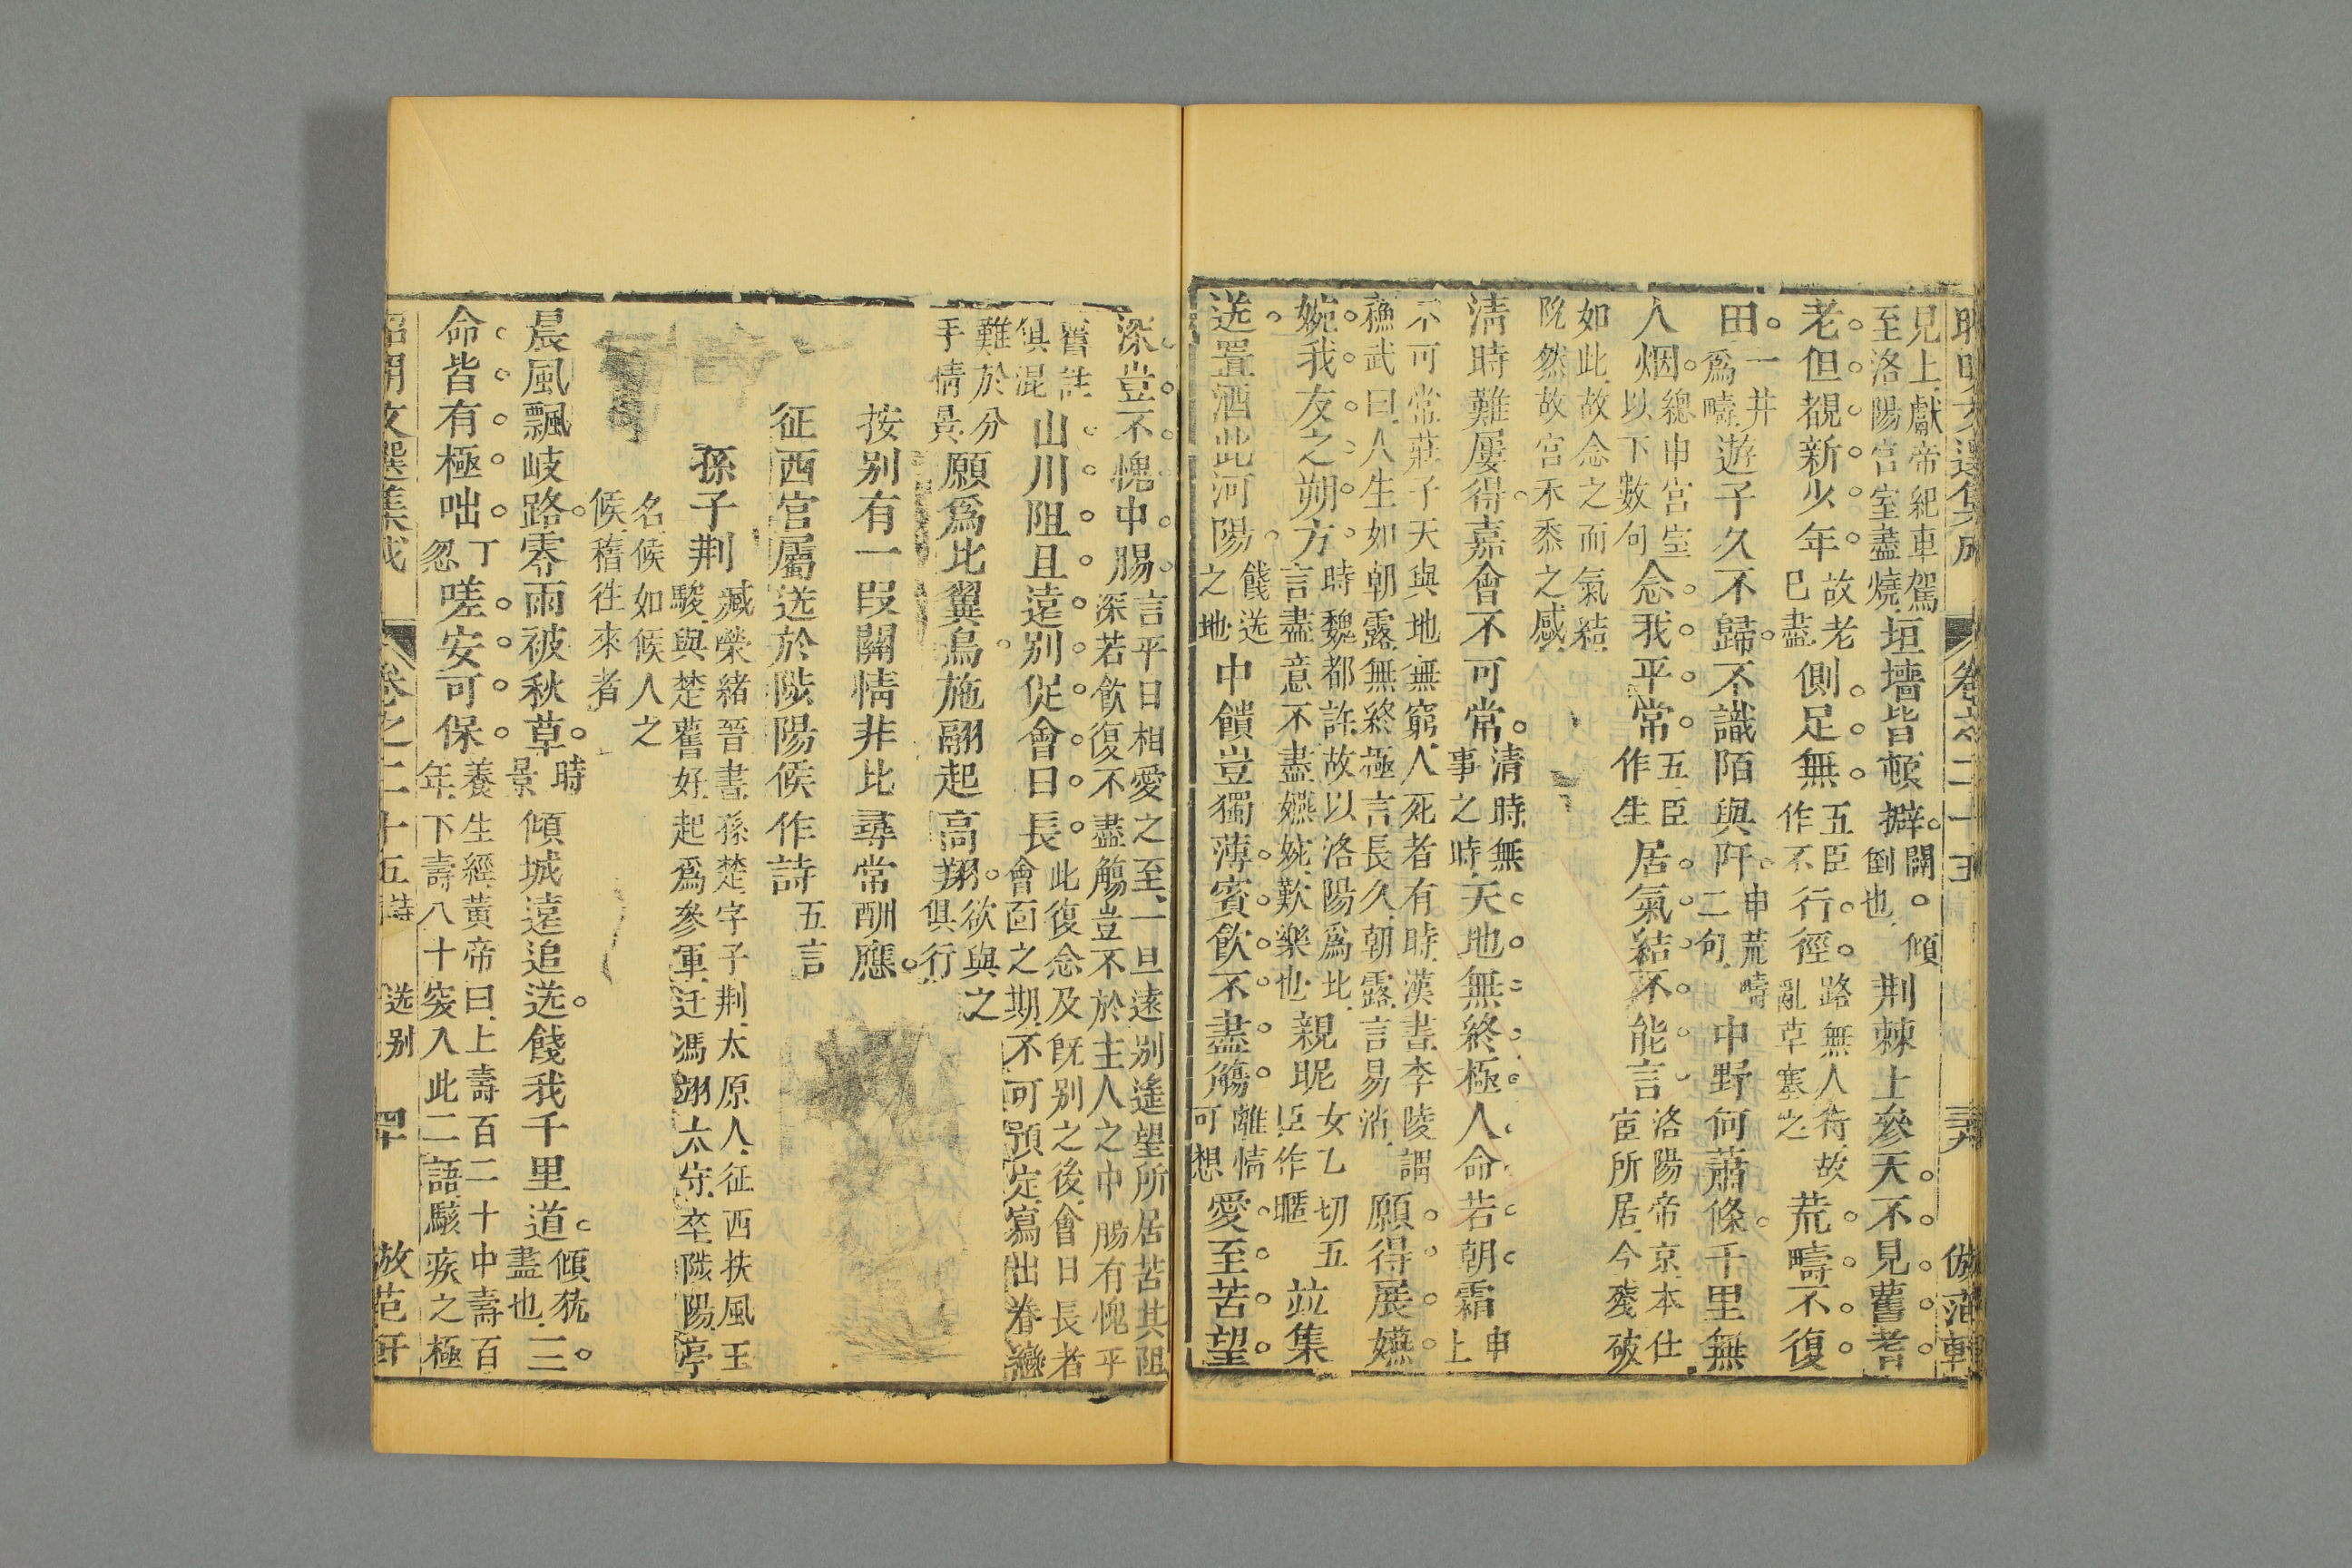 昭明文選集成 卷之二十五 倣范軒
見上獻帝紀車駕至洛陽宮室盡燒垣墻皆頓擗闢傾倒也荆棘上參天不見舊耆
老但覩新少年故老已盡側足無五臣作不行徑路無人待故亂草塞之荒疇不復
田一井爲疇遊子久不歸不識陌與阡申荒疇二句中野何蕭條千里無
人烟總申宮室以下數句念我平常五臣作生居氣結不能言洛陽帝京本仕宦所居今殘破
如此故念之而氣結阮然故宮禾黍之感
清時難屢得嘉會不可常清時無事之時天地無終極人命若朝霜申上
不可常莊子天與地無窮人死者有時漢書李陵謂蘇武曰人生如朝露無終極言長久朝露言易消願得展嬿
婉我友之朔方時魏都許故以洛陽爲北言盡意不盡嬿婉歡樂也親昵女乙切五臣作暱竝集
送置酒此河陽餞送之地中饋豈獨薄賓飲不盡觴離情可想愛至苦望
深豈不愧中腸言平日相愛之至一旦遠别遙望所居苦其阻深若飲復不盡觴豈不於主人之中腸有愧乎
舊註俱混山川阻且遠别促會日長此復念及旣别之後會日長者會面之期不可預定寫出眷戀
難於分手情景願爲比翼鳥施翮起高翔欲與之俱行
按别有一叚關情非比尋常酬應
征西官屬送於陟陽候作詩五言
孫子荆臧榮緒晉書孫楚字子荆太原人征西扶風王駿與楚舊好起爲參軍迁馮翊太守卒陟陽亭
名候如候人之候稽徃來者
晨風飄岐路零雨被秋草時景傾城遠追送餞我千里道傾猶盡也三
命皆有極咄丁忽嗟安可保養生經黄帝曰上壽百二十中壽百年下壽八十突入此二語駭疾之極
昭明文選集成 卷之二十五 詩 送别 倣范軒